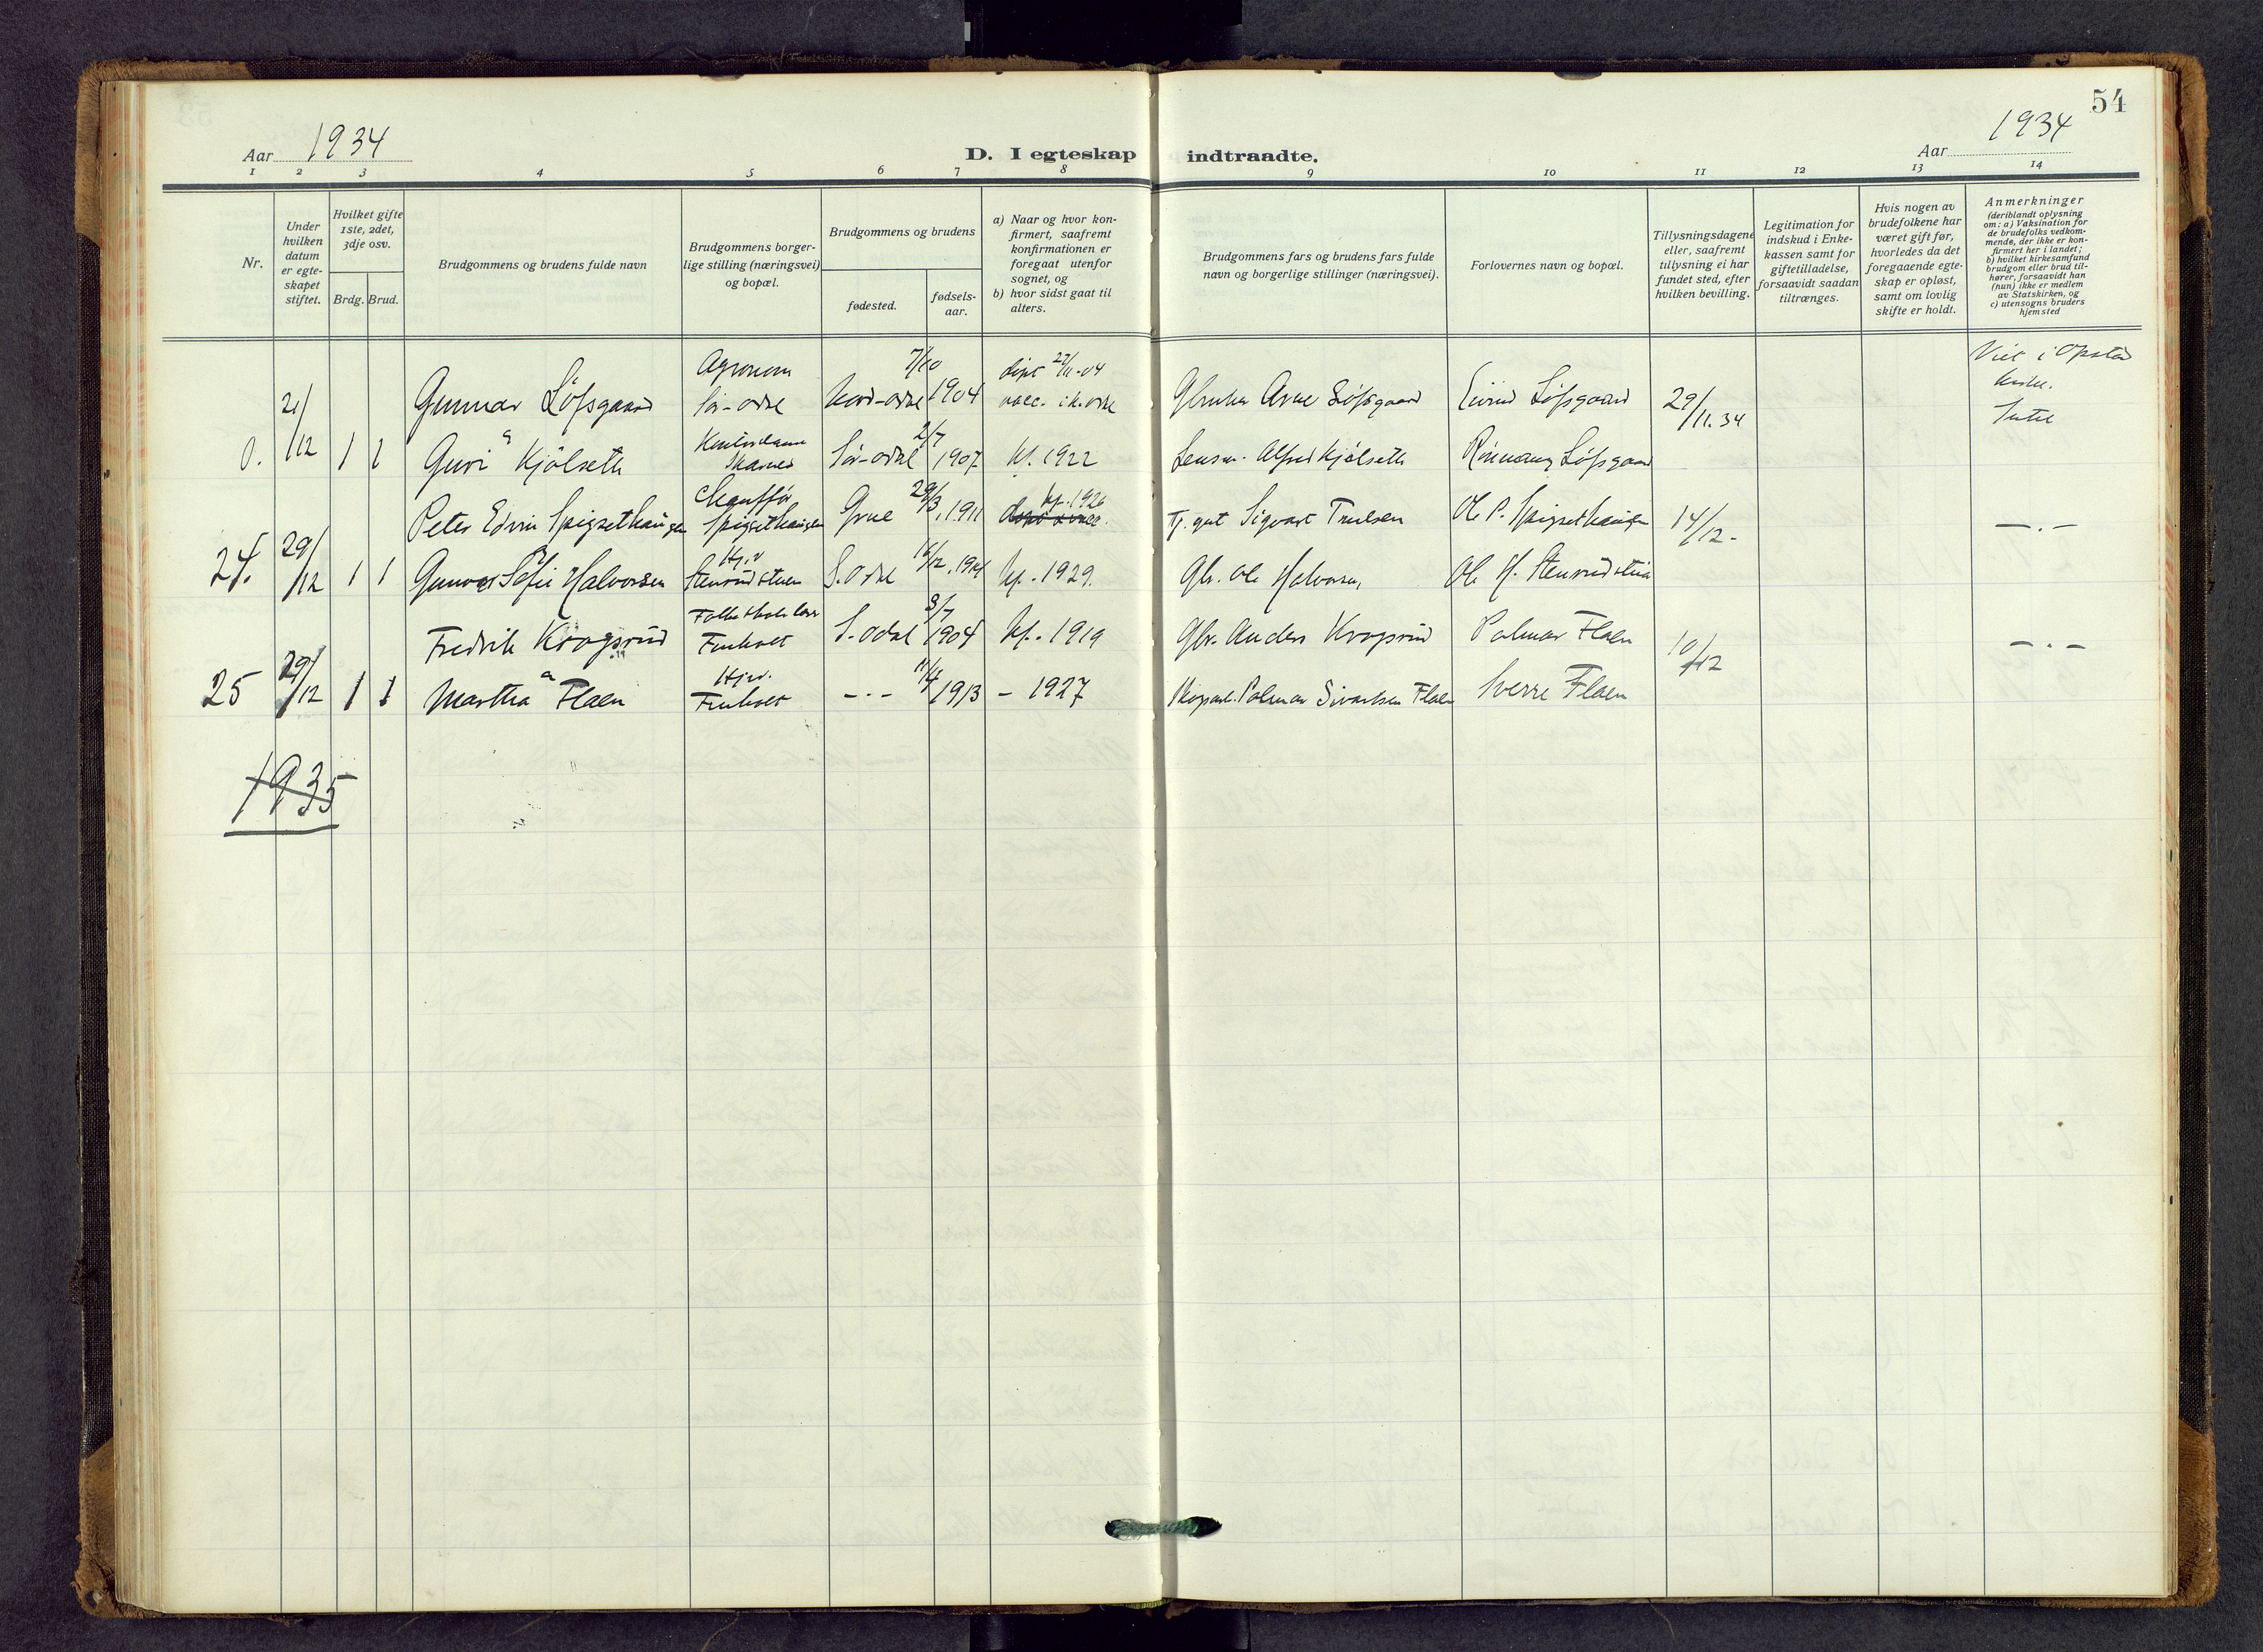 54
Aar 1934
D. I egteskap indtraadte.
Aar 1934
1 2 3 4 5 6 7 8 9 10 11 12 13 14
Nr.
Under hvilken datum er egteskapet stiftet.
Hvilket gifte 1ste, 2det, 3dje osv.
Brdg. Brud.
Brudgommens og brudens fulde navn
Brudgommens borgerlige stilling (næringsvei) og bopæl.
Brudgommens og brudens
fødested.
fødselsaar.
a) Naar og hvor konfirmert, saafremt konfirmationen er foregaat utenfor sognet, og
b) hvor sidst gaat til alters.
Brudgommens fars og brudens fars fulde navn og borgerlige stillinger (næringsvei).
Forlovernes navn og bopæl.
Tillysningsdagene eller, saafremt tillysning ei har fundet sted, efter hvilken bevilling.
Legitimation for indskud i Enkekassen samt for giftetilladelse, forsaavidt saadan tiltrænges.
Hvis nogen av brudefolkene har været gift før, hvorledes da det foregaaende egteskap er opløst, samt om lovlig skifte er holdt.
Anmerkninger
(deriblandt oplysning om: a) Vaksination for de brudefolks vedkommende, der ikke er konfirmert her i landet; b) hvilket kirkesamfund brudgom eller brud tilhører, forsaavidt han (hun) ikke er medlem av Statskirken, og c) utensogns bruders hjemsted
Agronom 7/10 døpt 27/11-04 Viet i Opstad
21/12 Gunnar Löfsgaard Sör-odal Nord-odal 1904 vacc. i N. odal Gbruker Arne Löfsgaard Eivind Löfsgaard 29/11.34 kirke.
0. 1 1 Guri Kjölseth Kontordame Skarnes Sör-odal 2/7 1907 kf. 1922 Lensm. Alfred Kjölseth Löfsgaard
Peter Edvin Spigsethaugen Chauffør Spigsethaugen Grue 29/3, 1911 kf. 1926 Tj.gut Sigvart Truelsen Ole P. Spigsethaugen 14/12- -.-
24. 29/12 1 1 Gunvor Sofie Halvorsen Hj.v Stensrudstuen S. Odal 16/12, 1914 kf. 1929. Gbr. Ole Halvorsen, Ole H. Stensrudstua
Fredrik Krogsrud Fruholt S. odal 3/7 1904 kf. 1919 Gbr. Anders Krogsrud Palmar Flaen 10/12 -.-
25 29/12 1 1 Martha Flaen Hjv. Fruholt -.- 11/4 1913 - 1927 Skogsarb. Palmar Sivertsen Flaen Sverre Flaen
1935